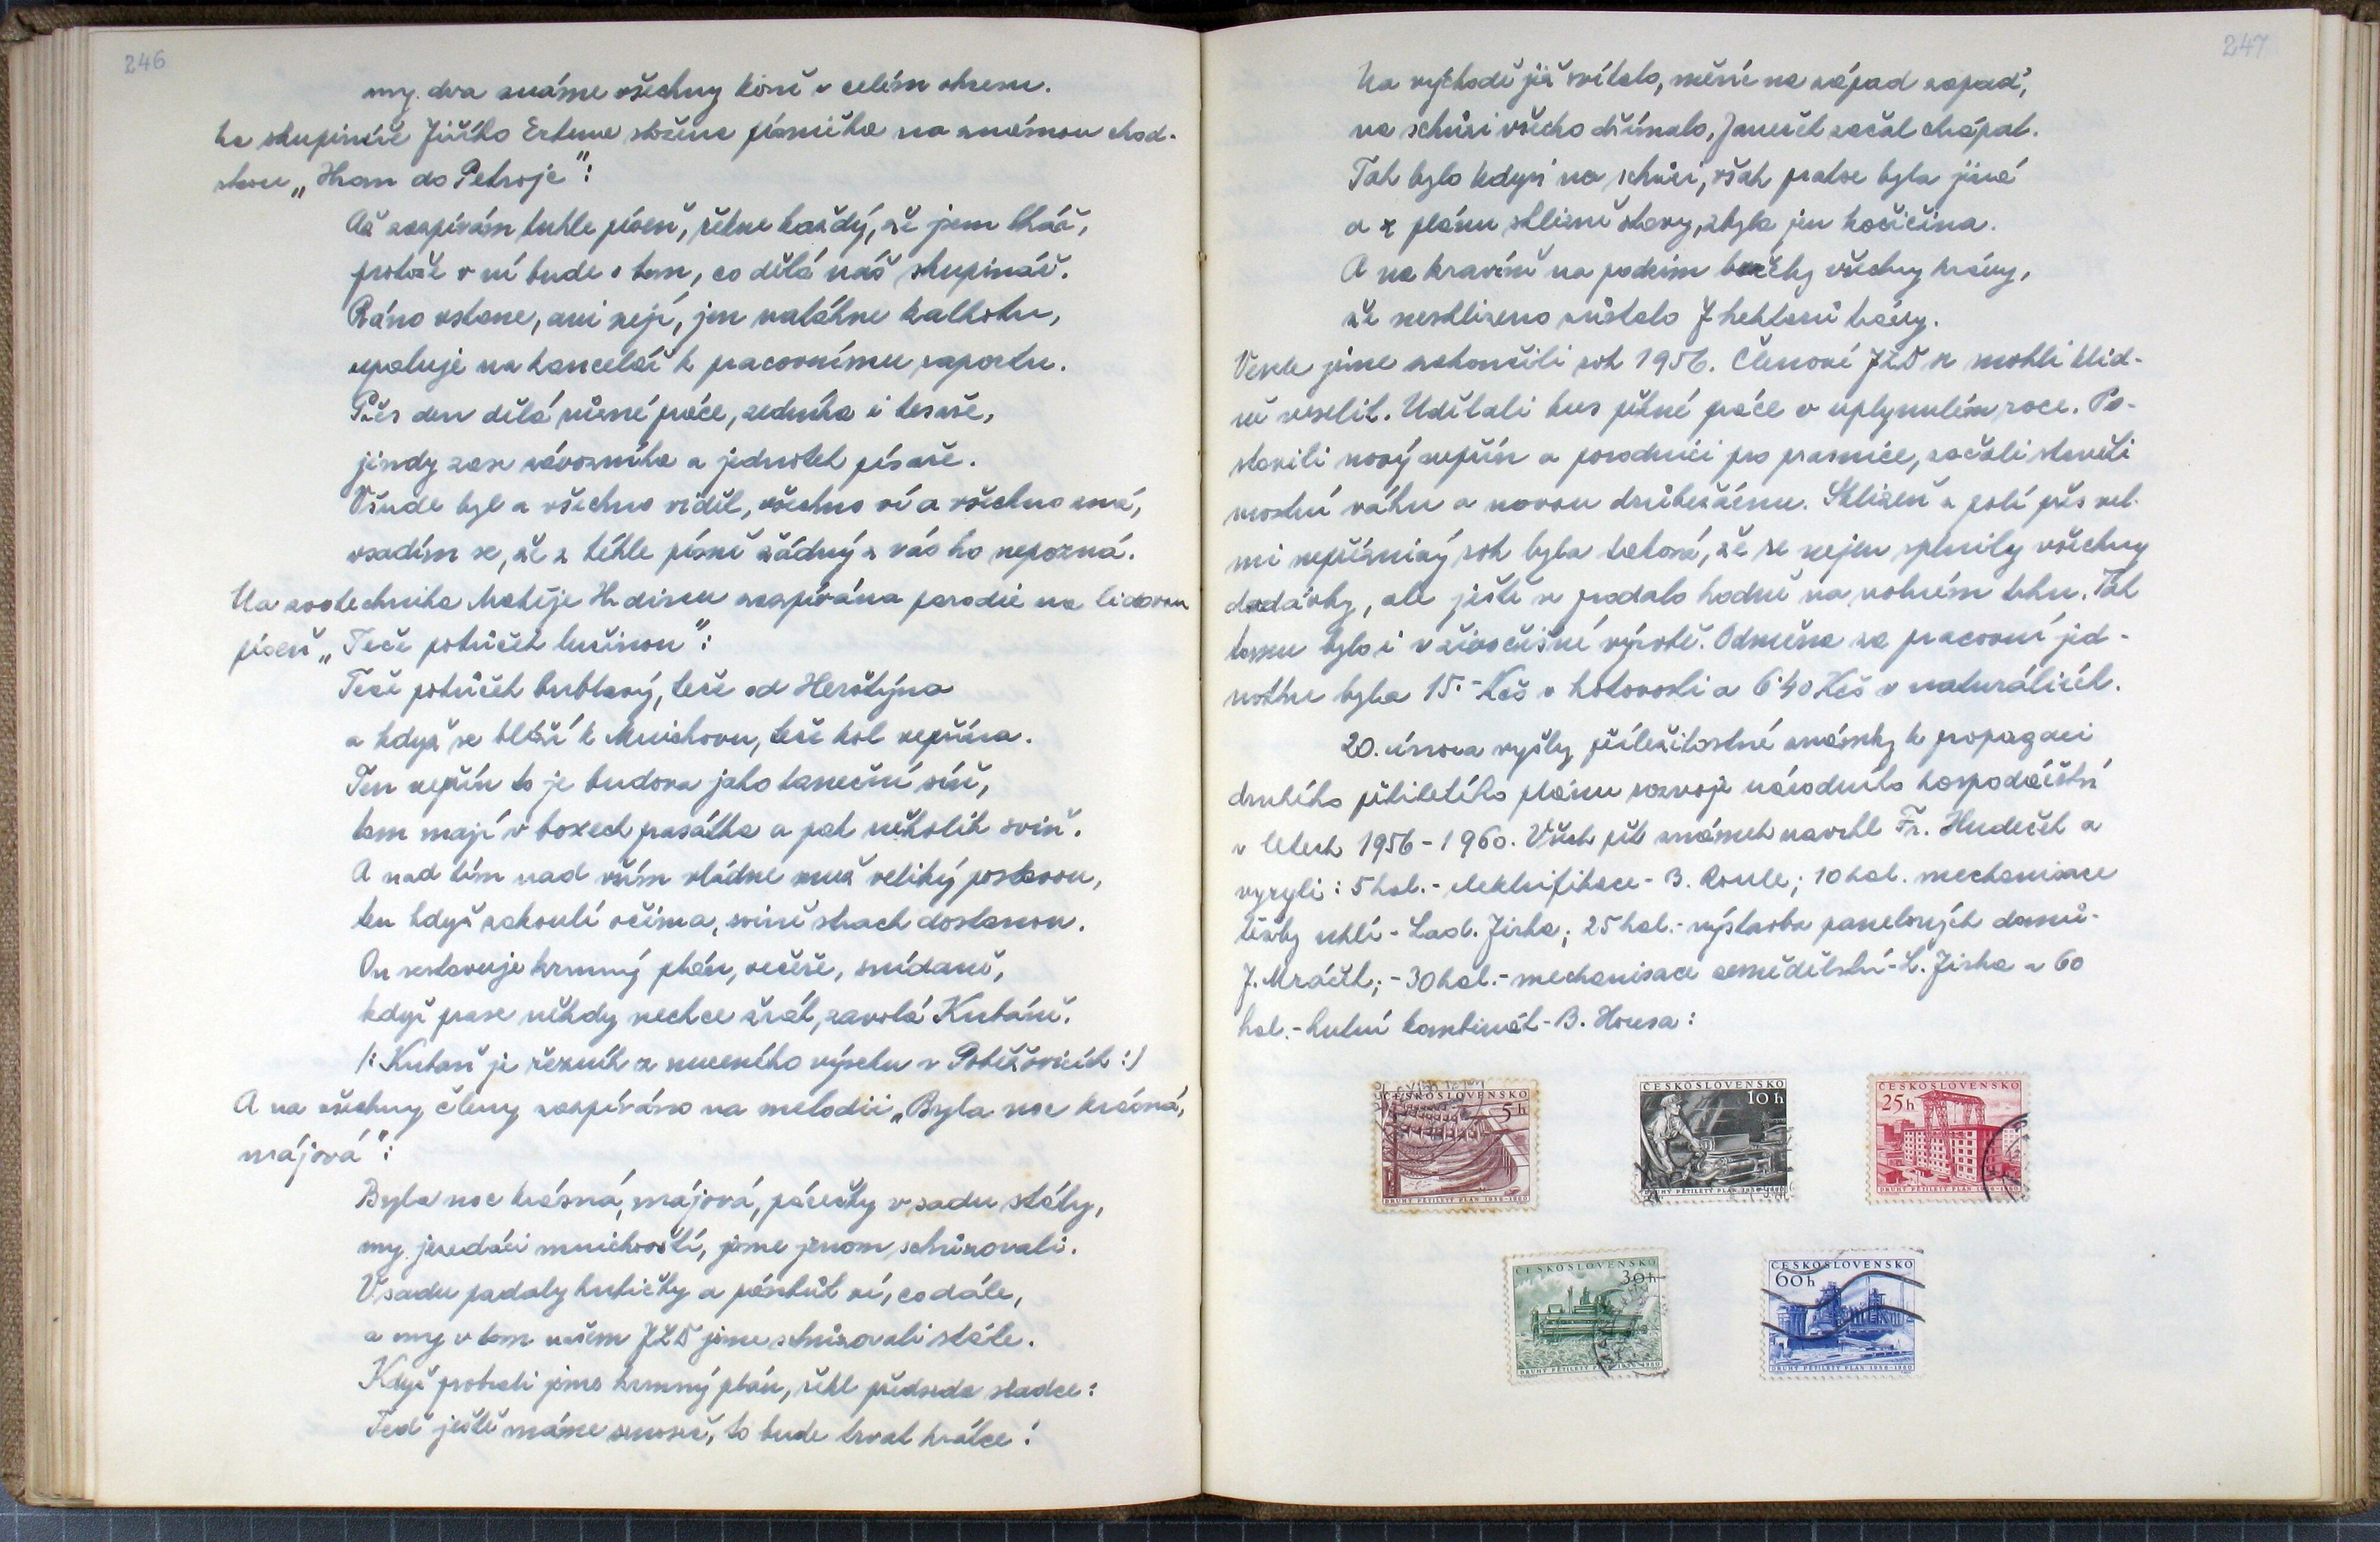 246
my dva známe všechny koně v celém okresu.
Na skupináře Jiřího Ertma složena písnička na známou chod-
skou „Hran do Petroje":
Až zazpívám tuhle píseň, řekne každý, že jsem lhář,
protože v ní bude o tom, co dělá náš skupinář.
Ráno vstane, ani nejí, jen natáhne kalhotu,
upaluje na kancelář k pracovnímu raportu.
Přes den dělá různé práce, zedníka i tesaře,
jindy zase závozníka a jednotek písaře.
Všude byl a všechno viděl, všechno ví a všechno zná,
vsadím se, že z téhle písně žádný z vás ho nepozná.
Na zootechnika Matěje Hrdinu zazpívána parodie na lidovou
píseň „Teče potůček lučinou":
Teče potůček bublavý, teče od Herštýna
a když se blíží k Mnichovu, teče kol vepřína.
Ten vepřín to je budova jako taneční síň,
tam mají v boxech prasátka a pak několik sviň.
A nad tím nad vším vládne muž veliký postavou,
ten když zakoulí očima, svině strach dostanou.
On sestavuje krmný plán, večeře, snídaně,
když prase někdy nechce žrát, zavolá Kutáně.
/: Kutaň je řezník z nuceného výseku v Poběžovicích :/
A na všechny členy zazpíváno na melodii „Byla noc krásná,
májová":
Byla noc krásná, májová, párečky v sadu stály,
my jezeďáci mnichovští, jsme jenom schůzovali.
V sadu padaly hubičky a pánbůh ví, co dále,
a my v tom našem JZD jsme schůzovali stále.
Když probrali jsme krmný plán, řekl předseda sladce:
Teď ještě máme senoseč, to bude trvat krátce!
247
Na východě již svítalo, měsíc na západ zapad,
na schůzi všecko dřímalo, Janeček začal chrápat.
Tak bylo kdysi na schůzi, však praxe byla jiná
a z plánu sklizně otavy, zbyla jen kočičina.
A na kravíně na podzim bučely všechny krávy,
že nesklizeno zůstalo 7 hektarů trávy.
Vesele jsme zakončili rok 1956. Členové JZD se mohli klid-
ně veselit. Udělali kus pěkné práce v uplynulém roce. Po-
stavili nový vepřín a porodnici pro prasnice, začali stavěti
mostní váhu a novou drůbežárnu. Sklizeň z polí přes vel-
mi nepříznivý rok byla taková, že se nejen splnily všechny
dodávky, ale ještě se prodalo hodně na volném trhu. Tak
tomu bylo i v živočišné výrobě. Odměna za pracovní jed-
notku byla 15.- Kčs v hotovosti a 6'40 Kčs v naturáliích.
20. února vyšly příležitostné známky k propagaci
druhého pětiletého plánu rozvoje národního hospodářství
v letech 1956-1960. Všech pět známek navrhl Fr. Hudeček a
vyryli: 5 hal. - elektrifikace - B. Roule; 10 hal. mechanisace
těžby uhlí - Lad. Jirka; 25 hal. - výstavba panelových domů -
J. Mráček; - 30 hal. - mechanisace zemědělství - L. Jirka a 60
hal. - hutní kombinát - B. Housa:
ČESKOSLOVENSKO
5 h
DRUHÝ PĚTILETÝ PLÁN 1956-1960
ČESKOSLOVENSKO
10 h
DRUHÝ PĚTILETÝ PLÁN 1956-1960
ČESKOSLOVENSKO
25 h
DRUHÝ PĚTILETÝ PLÁN 1956-1960
ČESKOSLOVENSKO
30 h
DRUHÝ PĚTILETÝ PLÁN 1956-1960
ČESKOSLOVENSKO
60 h
DRUHÝ PĚTILETÝ PLÁN 1956-1960